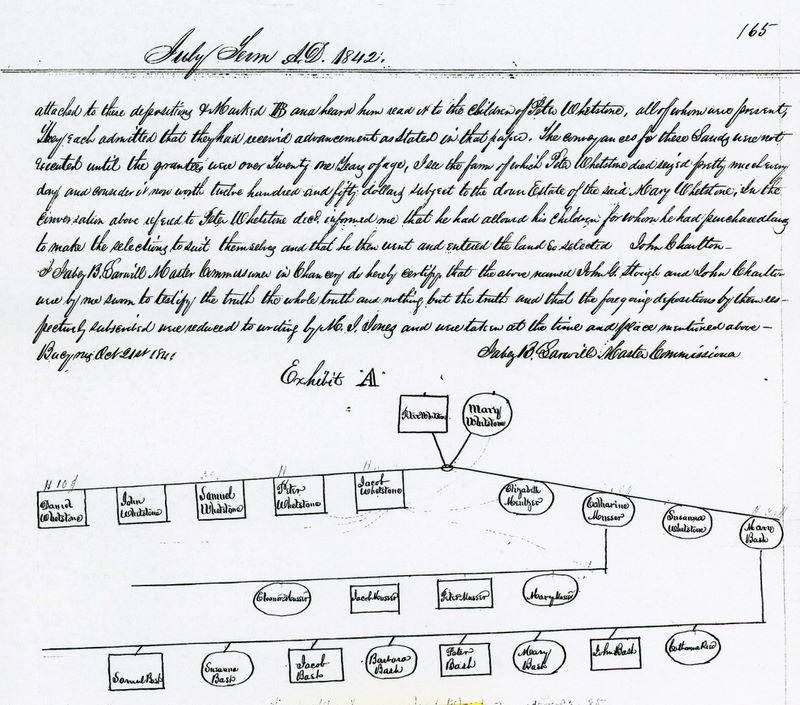 165
July Term A.D. 1842.
attached to these depositions & Marked B and heard him read it to the children of Peter Whetstone, all of whom were present,
They each admitted that they had received advancement as stated in that paper. The conveyances for these Lands were not
executed until the grantees were over Twenty one Years of age, I see the farm of which Peter Whetstone died seized pretty much every
day and consider it now worth twelve hundred and fifty dollars subject to the dower Estate of the said Mary Whetstone, In the
Conversation above refered to Peter Whetstone decd. informed me that he had allowed his children for whom he had purchased land
to make the selections to suit themselves and that he then went and entered the land so selected John Charlton
I Jabez B. Larwill Master Commissioner in Chancery do hereby certify that the above named John G. Stough and John Charlton
were by me sworn to testify the truth the whole truth and nothing but the truth and that the foregoing depositions by them res-
pectively subscribed were reduced to writing by M. J. Jones and were taken at the time and place mentioned above
Bucyrus Oct 21st 1841 Jabez B. Larwill Master Commissiona
Exhibit A
Peter Whetstone
Mary Whetstone
David Whetstone
John Whetstone
Samuel Whetstone
Peter Whetstone
Jacob Whetstone
Elizabeth Mentzer
Catharine Musser
Susanna Whetstone
Mary Bash
Eleonor Musser
Jacob Musser
Peter Musser
Mary Musser
Samuel Bash
Susanna Bash
Jacob Bash
Barbara Bash
Peter Bash
Mary Bash
John Bash